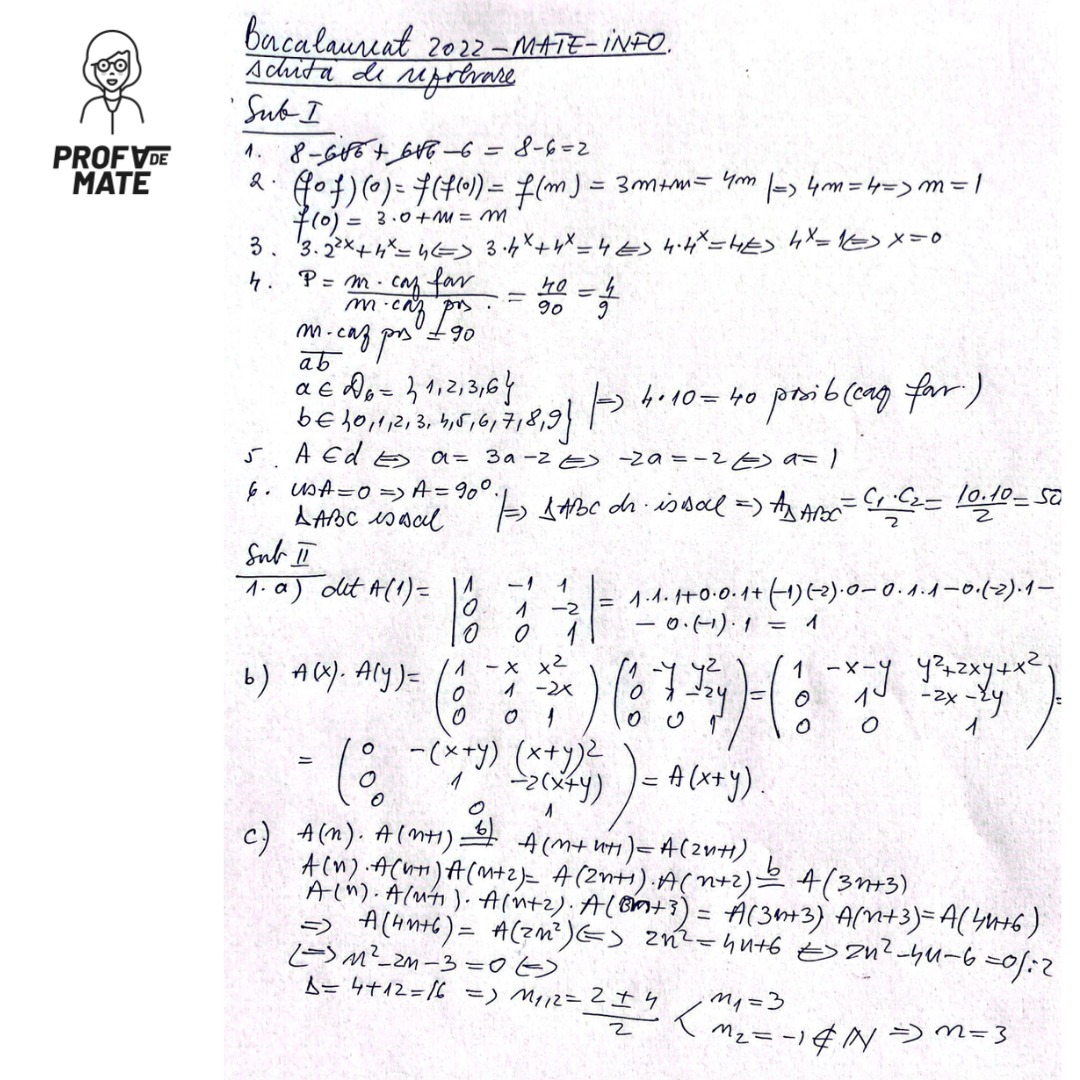 PROFA DE
MATE
Bacalaureat 2022-MATE-INFO.
schiță de rezolvare
Sub I
1. 8-6√6 + 6√6 -6 = 8-6=2
2. (f∘f)(0)= f(f(0))= f(m) = 3m+m= 4m |=> 4m=4=> m=1
f(0) = 3.0+m = m
3. 3·2^2x+4^x=4<=> 3·4^x+4^x=4 <=> 4·4^x=4<=> 4^x=1<=> x=0
4. P= m. caz fav / m. caz pos. = 40/90 = 4/9
m. caz pos = 90
ab
a ∈ D6= {1,2,3,6}
b∈ {0,1,2,3,4,5,6,7,8,9} |=> 4·10= 40 posib (caz fav.)
5. A∈d <=> a= 3a-2 <=> -2a=-2 <=> a=1
6. cosA=0 => A=90°.
ΔABC isoscel |=> ΔABC dr. isoscel => A ΔABC= C1·C2/2 = 10.10/2 = 50
Sub II
1. a) det A(1)= |1 -1 1| = 1.1.1+0.0.1+(-1)(-2).0-0.1.1-0.(-2).1-
|0 1 -2|
|0 0 1| - 0.(-1).1 = 1
b) A(x). A(y)= (1 -x x²) (1 -y y²) = (1 -x-y y²+2xy+x²) =
(0 1 -2x) (0 1 -2y) (0 1 -2x-2y)
(0 0 1) (0 0 1) (0 0 1)
= (0 -(x+y) (x+y)2) = A(x+y).
(0 1 -2(x+y))
(0 0 1)
c) A(n). A(n+1) =b) A(n+n+1)=A(2n+1)
A(n).A(n+1)A(n+2)= A(2n+1).A(n+2)=b A(3n+3)
A(n). A(n+1). A(n+2). A(3n+3) = A(3n+3) A(n+3)=A(4n+6)
=> A(4n+6)= A(2n²)<=> 2n²=4n+6 <=> 2n²-4n-6=0/:2
<=> n²-2n-3=0 <=>
Δ= 4+12=16 => n1,2= 2±4/2 < n1=3
n2=-1∉N => n=3